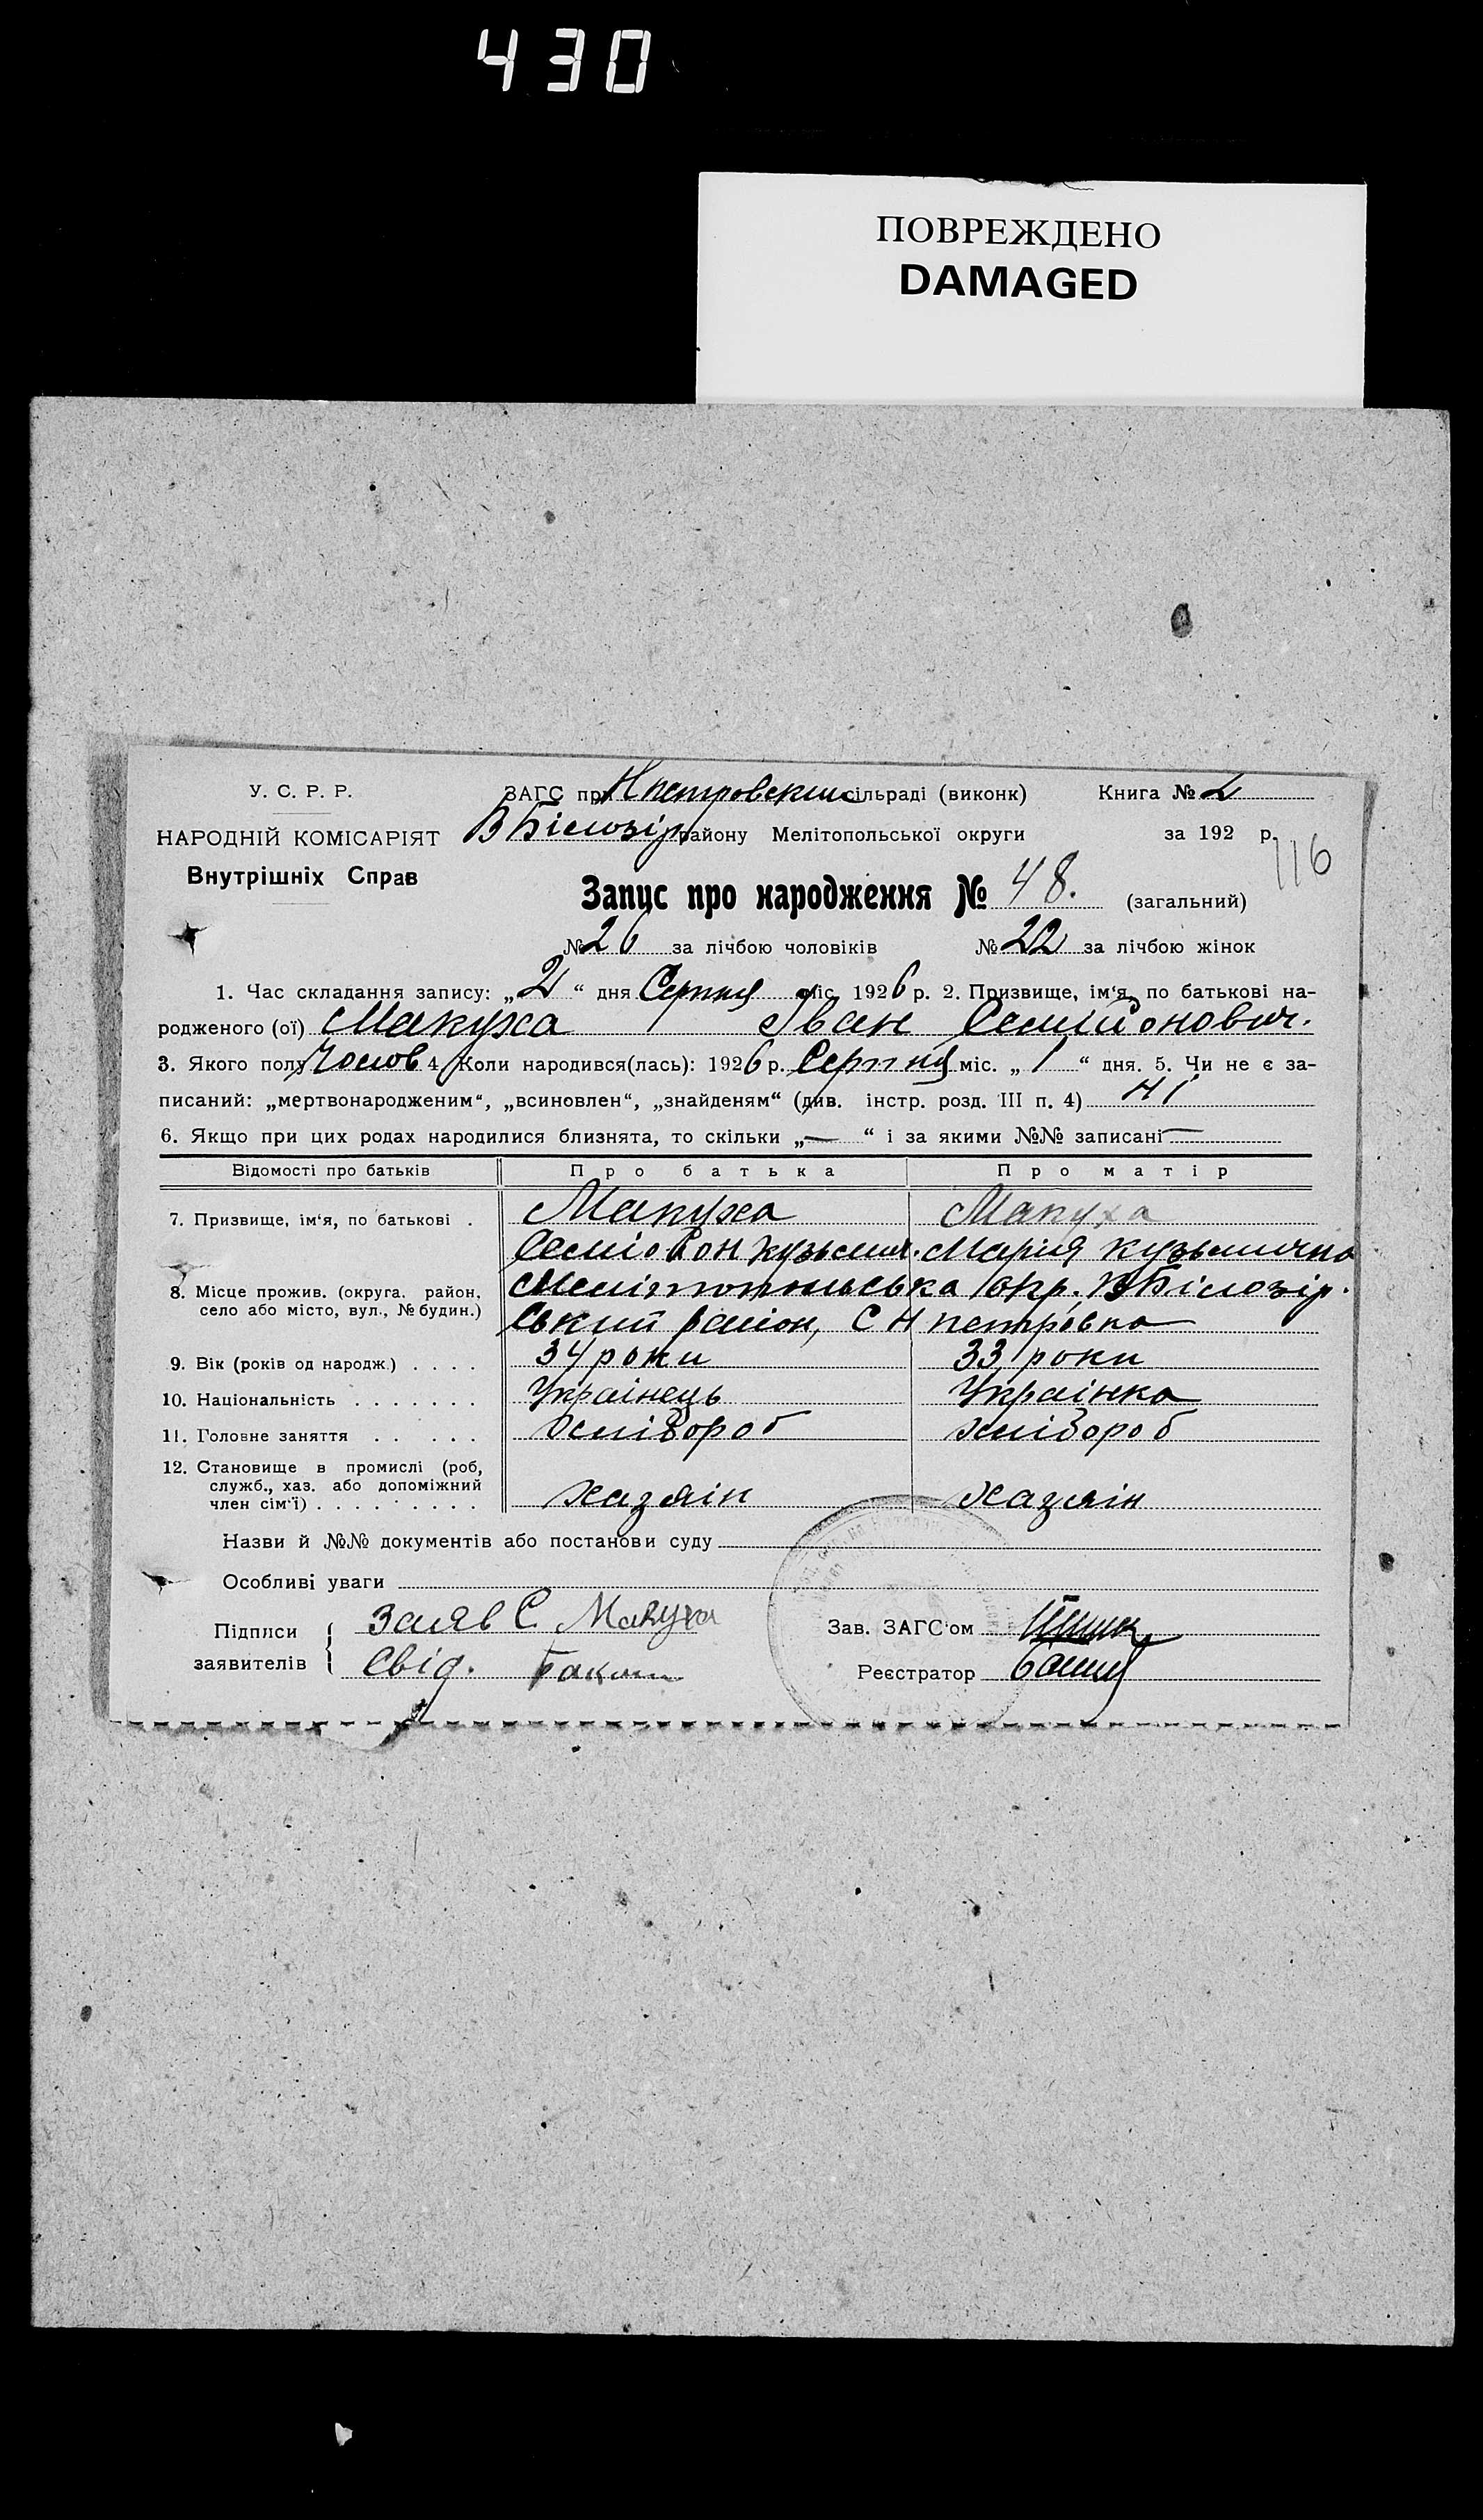 430
ПОВРЕЖДЕНО
DAMAGED
У. С. Р. Р.
НАРОДНІЙ КОМІСАРІЯТ
Внутрішніх Справ
ЗАГС при Нпетровским сільраді (виконк) Книга № 2
В Білозір району Мелітопольської округи за 192 р.
116
Запис про народження № 48. (загальний)
№ 26 за лічбою чоловіків № 22 за лічбою жінок
1. Час складання запису: „2“ дня Серпня міс. 1926 р. 2. Призвище, ім'я, по батькові на-
родженого (ої) Макуха Іван Семіонович.
3. Якого полу Чолов 4. Коли народився(лась): 1926 р. Серпня міс. „1“ дня. 5. Чи не є за-
писаний: „мертвонародженим“, „всиновлен“, „знайденям“ (див. інстр. розд. III п. 4) Ні
6. Якщо при цих родах народилися близнята, то скільки „—“ і за якими №№ записані —
Відомості про батьків Про батька Про матір
7. Призвище, ім'я, по батькові . Макуха Макуха
Кузьмич. Мария Кузьмична
8. Місце прожив. (округа. район, Мелітопольська окр. В Білозір.
село або місто, вул., № будин.) Ський район, С Н петровка
9. Вік (років од народж.) . . . . 34 роки 33 роки
10. Національність . . . . . . . Українець Українка
11. Головне заняття . . . . . Хлібороб Хлібороб
12. Становище в промислі (роб,
служб., хаз. або допоміжний
член сім'ї) . . . . . . . . . Хазяін Хазяін
Назви й №№ документів або постанови суду
Особливі уваги
Підписи заявителів
Заяв С. Макуха
Свід.
Зав. ЗАГС'ом
Реєстратор